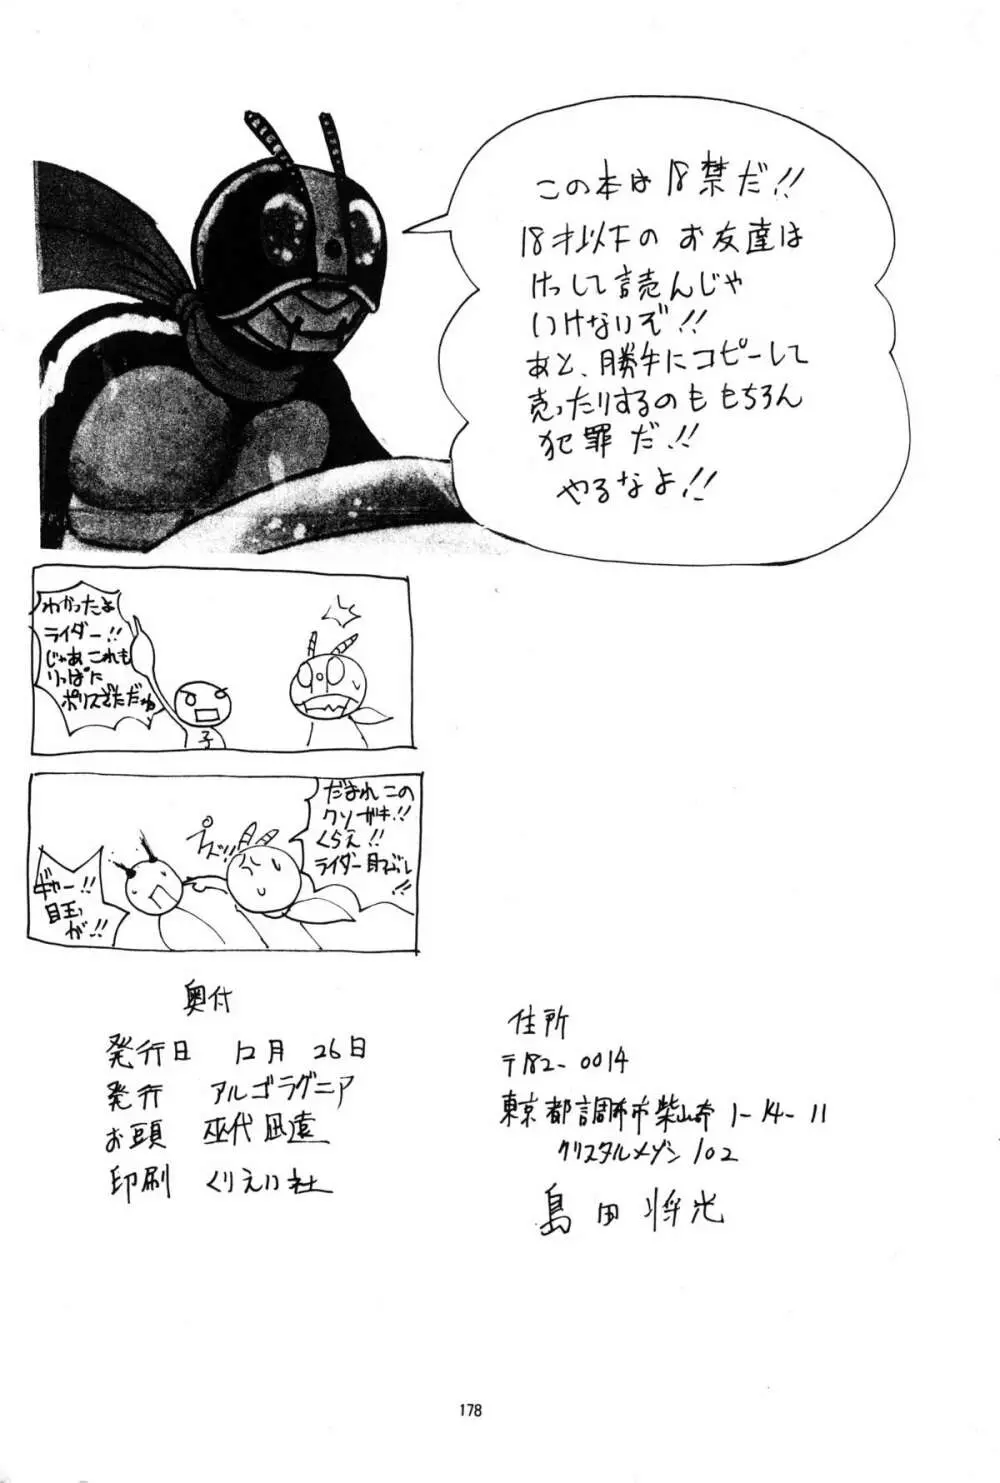 この本は18禁だ!!
18才以下のお友達は
けっして読んじゃ
いけないぞ!!
あと、勝手にコピーして
売ったりするのももちろん
犯罪だ!!
やるなよ!!
わかったよ
ライダー!!
じゃあこれも
りっぱに
ポリスざただね
子
だまれこの
クソガキ!!
くらえ!!
ライダー目つぶし
プスッ!!
ギャー!!
目玉
が!!
奥付
発行日 12月 26日
発行 アルゴラグニア
お頭 巫代凪遠
印刷 くりえい社
住所
〒182-0014
東京都調布市柴崎 1-14-11
クリスタルメゾン 102
島田将光
178